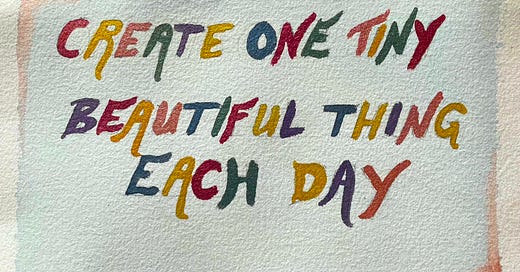 CREATE ONE TINY
BEAUTIFUL THING
EACH DAY